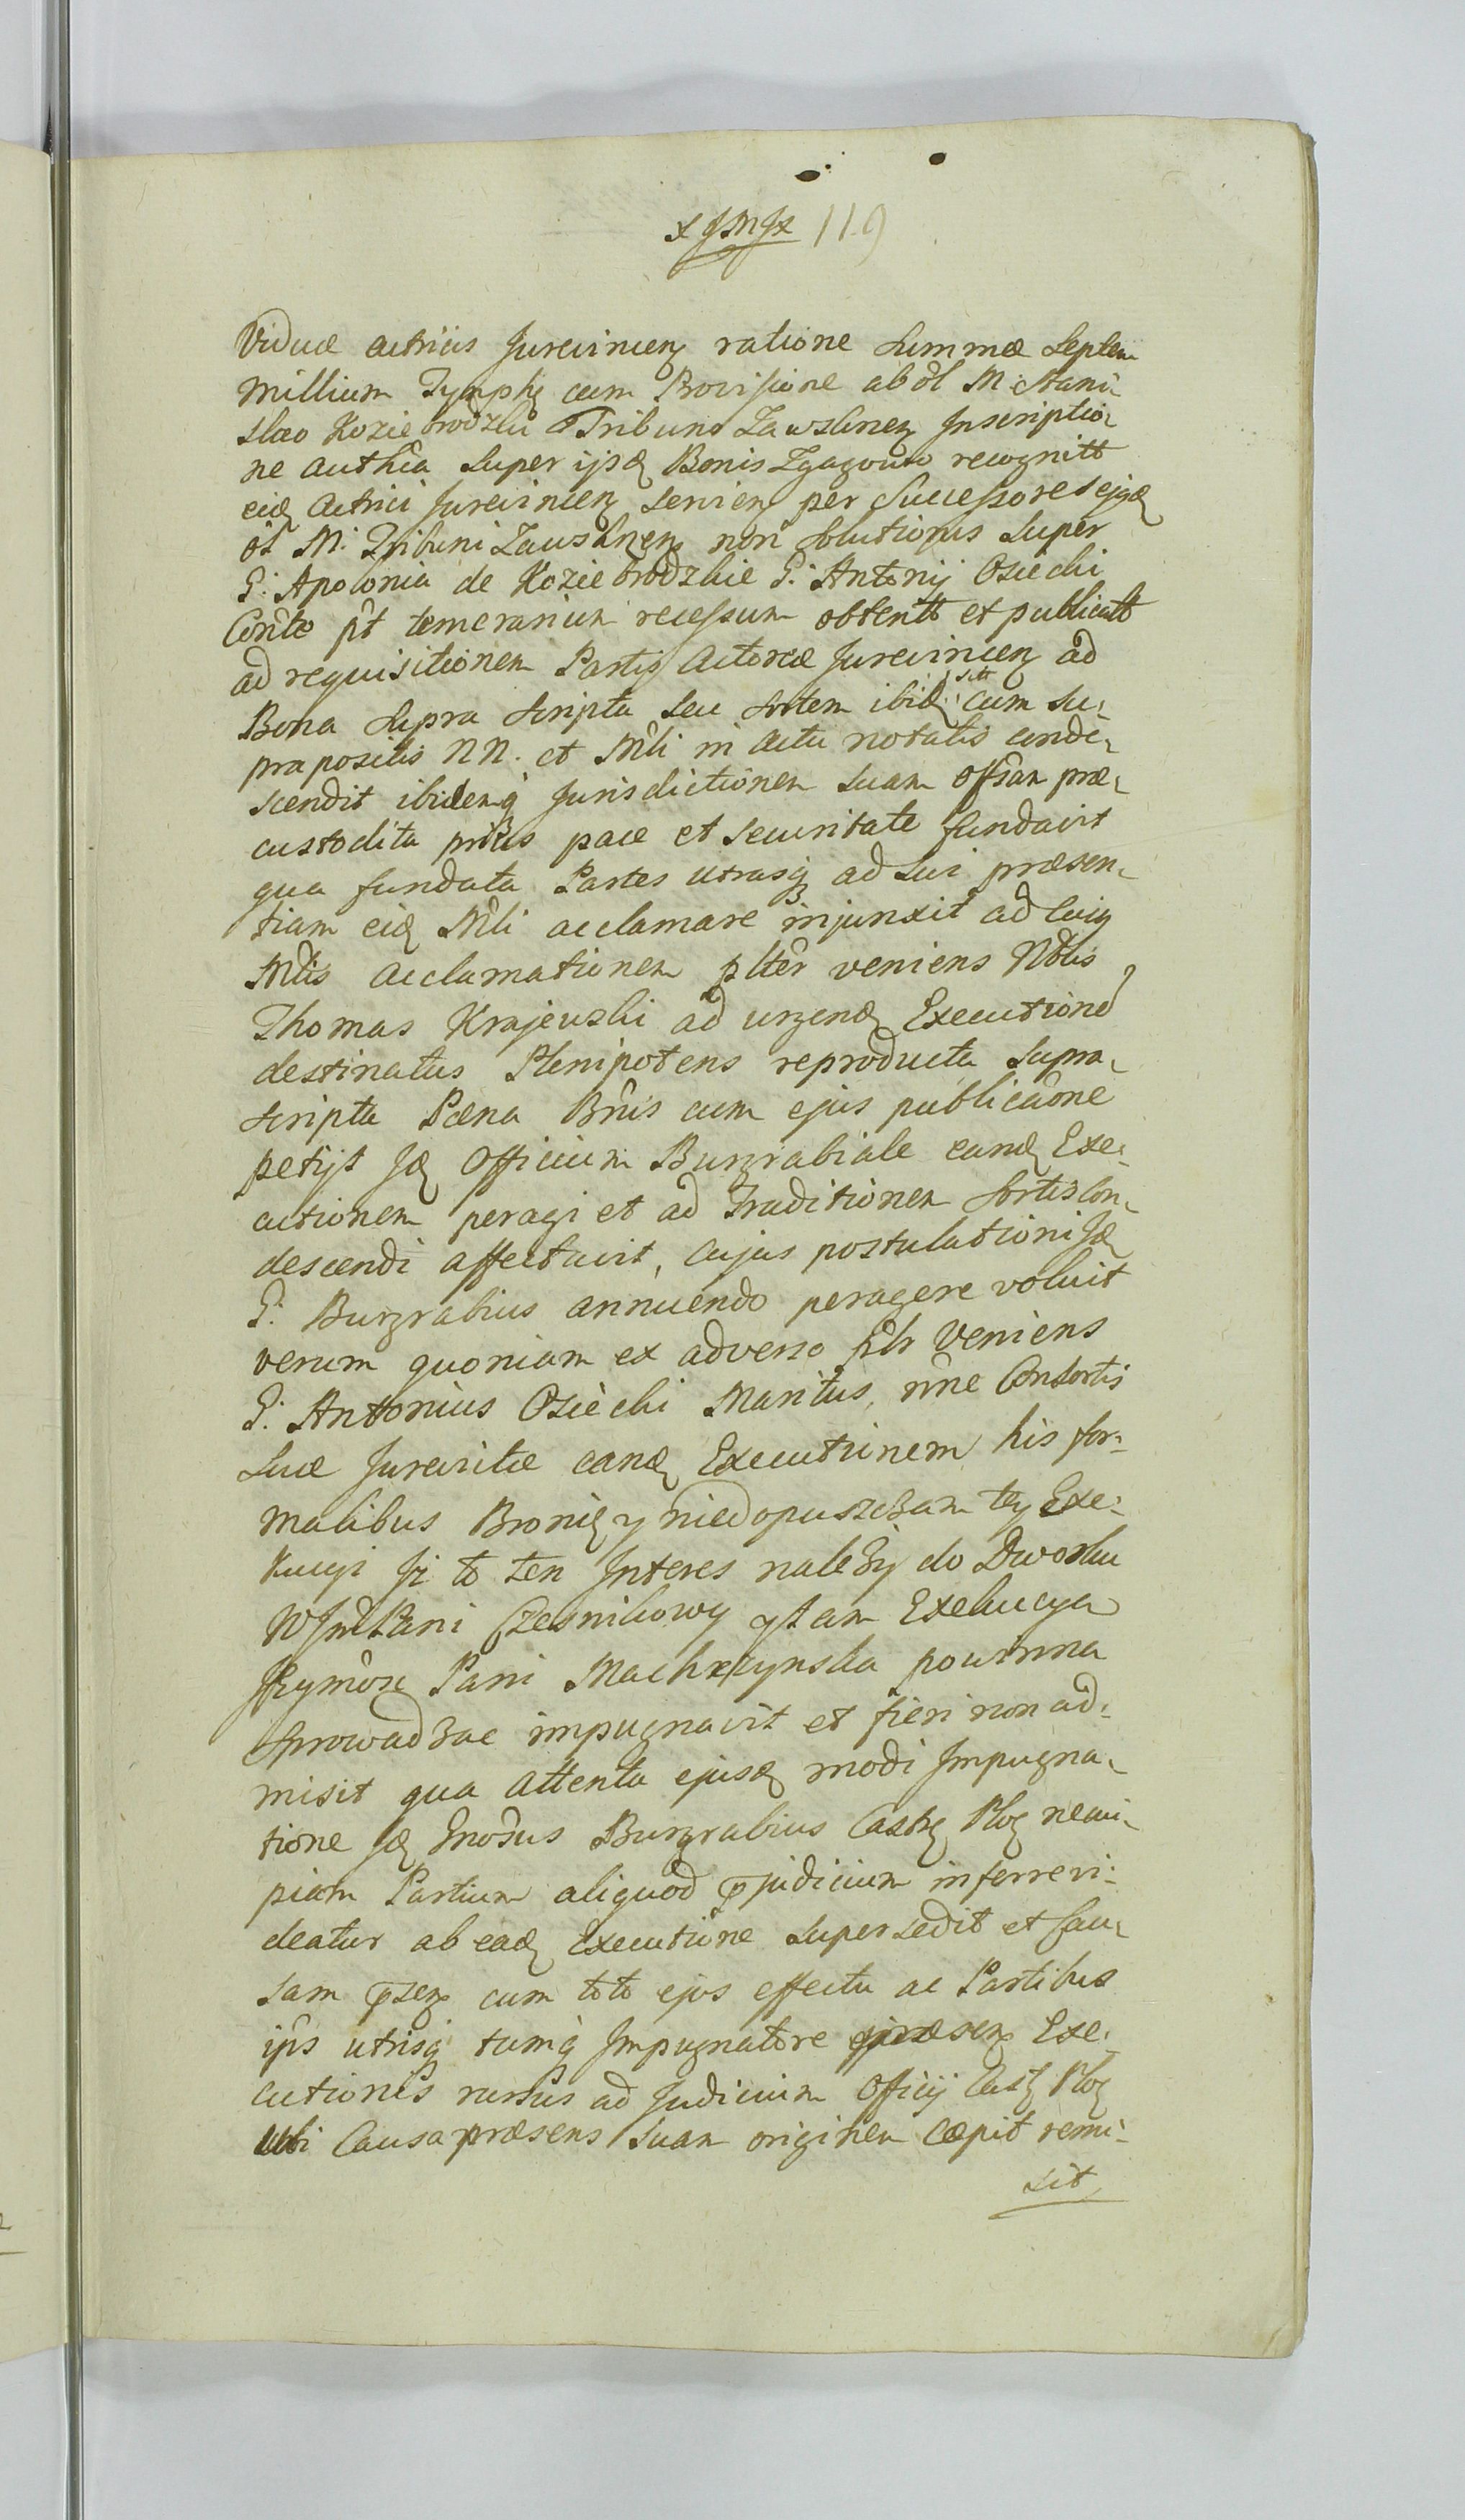 x JMJx 119
Viduæ actricis Jurevincen ratione Summæ Septem
Millium Tymph cum Provisione ab ol M. Stani-
slao Koziebrodzki Tribuno Zawskrnen Inscriptio-
ne auth̃ca Super ijsd Bonis Zgagowo recognitt
eid Actrici Jurevincen Servien per Successores ejqd
ol M: Tribuni Zawskrnen non Solutionis Super
G: Apolonia de Koziebrodzkie G: Antonij Osiecki
Con̂te pt temerarium recessum obtentt et publicatt
ad requisitionem Partis Actoreæ Jurevincen ad
Bona Supra Scripta Seu Sortem ibid: sitt cum Su-
prapositis NN. et Mlî in Actu notatis conde-
scendit ibidemq Jurisdictionem Suam offsam præ-
custodita priûs pace et Securitate fundavit
qua fundata Partes utrasq ad Sui præsen-
tiam eid Mlî acclamare injunxit ad cuig
Mlîs acclamationem plter veniens Nblis
Thomas Krajewski ad urgend Executione
destinatus Plenipotens reproducta Supra-
Scripta Pæna Bn̂is cum ejus publicaône
petijt Id Officium Burgrabiale eand Exe-
cutionem peragi et ad Traditionem Sortis Con-
descendi affectavit, cujus postulationi Id
G: Burgrabius annuendo peragere voluit
verum quoniam ex adverso pltr Veniens
G: Antonius Osiècki Maritus, nne Consortis
Suæ Jurevictæ eand Executionem his for-
malibus Bronię y niedopuszczam tey Exe-
kucyi Jż to ten Interes należy do Dworku
WJmPani Czesnikowy y tam Exekucya
JEymôsc Pani Machczynska powinna
Sprowadzac impugnavit et fieri non ad-
misit qua attenta ejusd modi Impugna-
tione Id Gnosus Burgrabius Castr Ploc necui-
piam Partium aliquod pjudicium inferre vi-
deatur ab ead Executione Supersedit et Cau-
sam psen cum toto ejus effectu ac Partibus
ipis utrisq tumq Impugnatore præsen Exe-
cutionis rursus ad Judicium Officij Cast Ploc
Ubi Causa præsens Suam originem cæpit remi-
sit